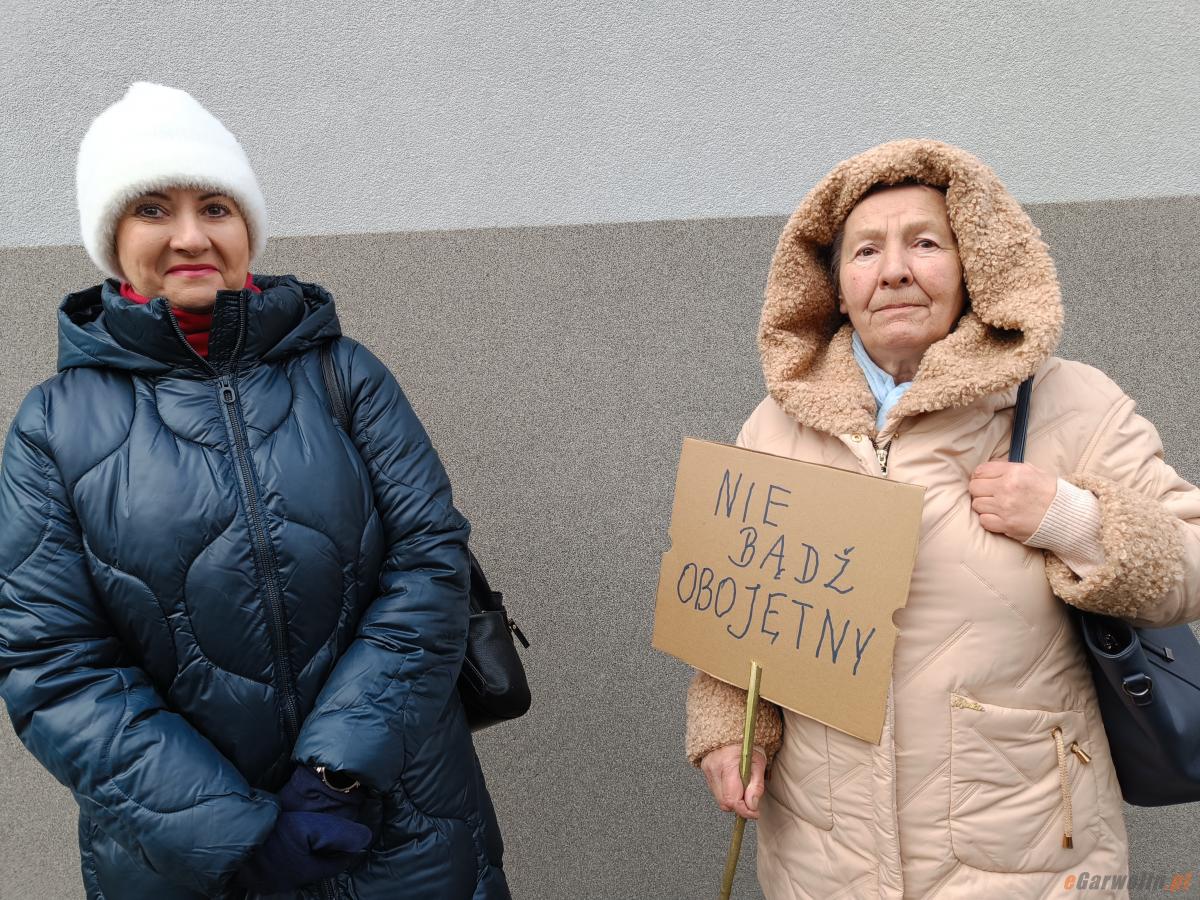 NIE
BĄDŹ
OBOJĘTNY
eGarwolin.pl